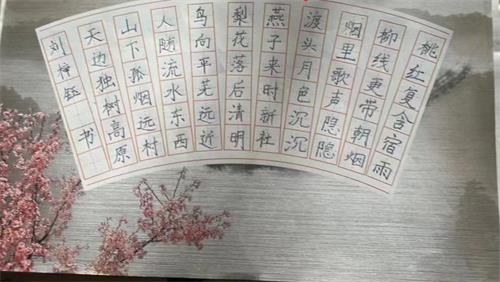 桃红复含宿雨
柳线更带朝烟
烟里歌声隐隐
渡头月色沉沉
燕子来时新社
梨花落后清明
鸟向平芜远近
人随流水东西
山下孤烟远村
天边独树高原
刘梓钰书